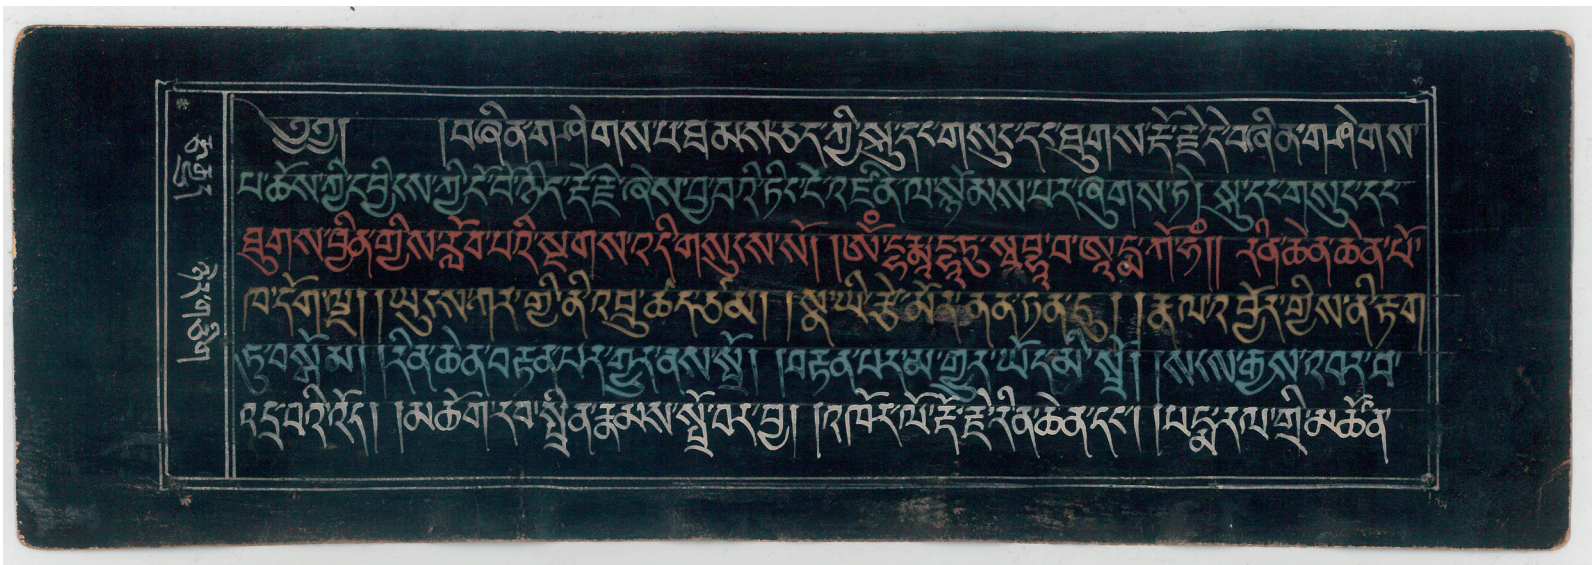 ༄༅། །བཞིན་གཤེགས་པ་ཐམས་ཅད་ཀྱི་སྐུ་དང་གསུང་དང་ཐུགས་རྡོ་རྗེ་དེ་བཞིན་གཤེགས་
པ་ཆོས་ཀྱི་དབྱིངས་ཀྱི་ངོ་བོ་ཉིད་རྡོ་རྗེ་ཞེས་བྱ་བའི་ཏིང་ངེ་འཛིན་ལ་སྙོམས་པར་ཞུགས་ཏེ། སྐུ་དང་གསུང་དང་
ཐུགས་བྱིན་གྱིས་རློབ་པའི་སྔགས་འདི་གསུངས་སོ། །ཨོཾ་དྷརྨ་དྷཱ་ཏུ་སྭ་བྷཱ་བ་ཨཱཏྨ་ཀོ་ཧཾ།། རིན་ཆེན་ཆེན་པོ་
ཁ་དོག་ལྔ། །ཡུངས་ཀར་གྱི་ནི་འབྲུ་ཚད་ཙམ། །སྣ་ཡི་རྩེ་མོར་ནན་ཏན་དུ། །རྣལ་འབྱོར་གྱིས་ནི་རྟག་
ཏུ་བསྒོམ། །རིན་ཆེན་བརྟན་པར་གྱུར་ནས་སྤྲོ། །བརྟན་པར་མ་གྱུར་ཡོང་མི་སྤྲོ། །སངས་རྒྱས་འབར་བ་
འདྲ་བའི་འོད། །མཆོག་རབ་སྤྲིན་རྣམས་སྤྲོ་བར་བྱ། །འཁོར་ལོ་རྡོ་རྗེ་རིན་ཆེན་དང་། །པདྨ་རལ་གྲི་མཚོན་